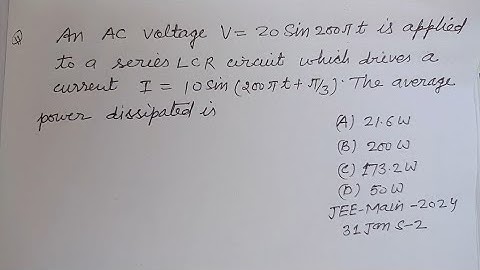 Q An AC voltage V = 20 Sin 200πt is applied
to a series LCR circuit which drives a
current I = 10 sin (200πt + π/3). The average
power dissipated is
(A) 21.6 W
(B) 200 W
(C) 173.2 W
(D) 50 W
JEE-Main-2024
31 Jan S-2